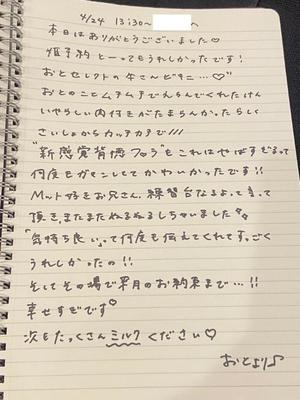 4/24 13:30~
本日はありがとうございました♡
姫予約とーってもうれしかったです!
おとセレクトの牛さんビキニ…♡"
おとのことムチムチでえらんでくれたけん
いやらしい肉付きがたまらんかったらしく
さいしょからカッチカチで///
"新感覚背徳フェラ"もこれはやばすぎるって
何度もガマンしてかわいかったです!!
Mット好きお兄さん、練習台なるよ、って言って
頂きまたまたぬるぬるしちゃいました
"気持ち良い"って何度も伝えてくれてすっごく
うれしかったの!!
そしてその場で来月のお約束まで…!!
幸せすぎです♡
次もたっくさんミルクください♡
おとより♪